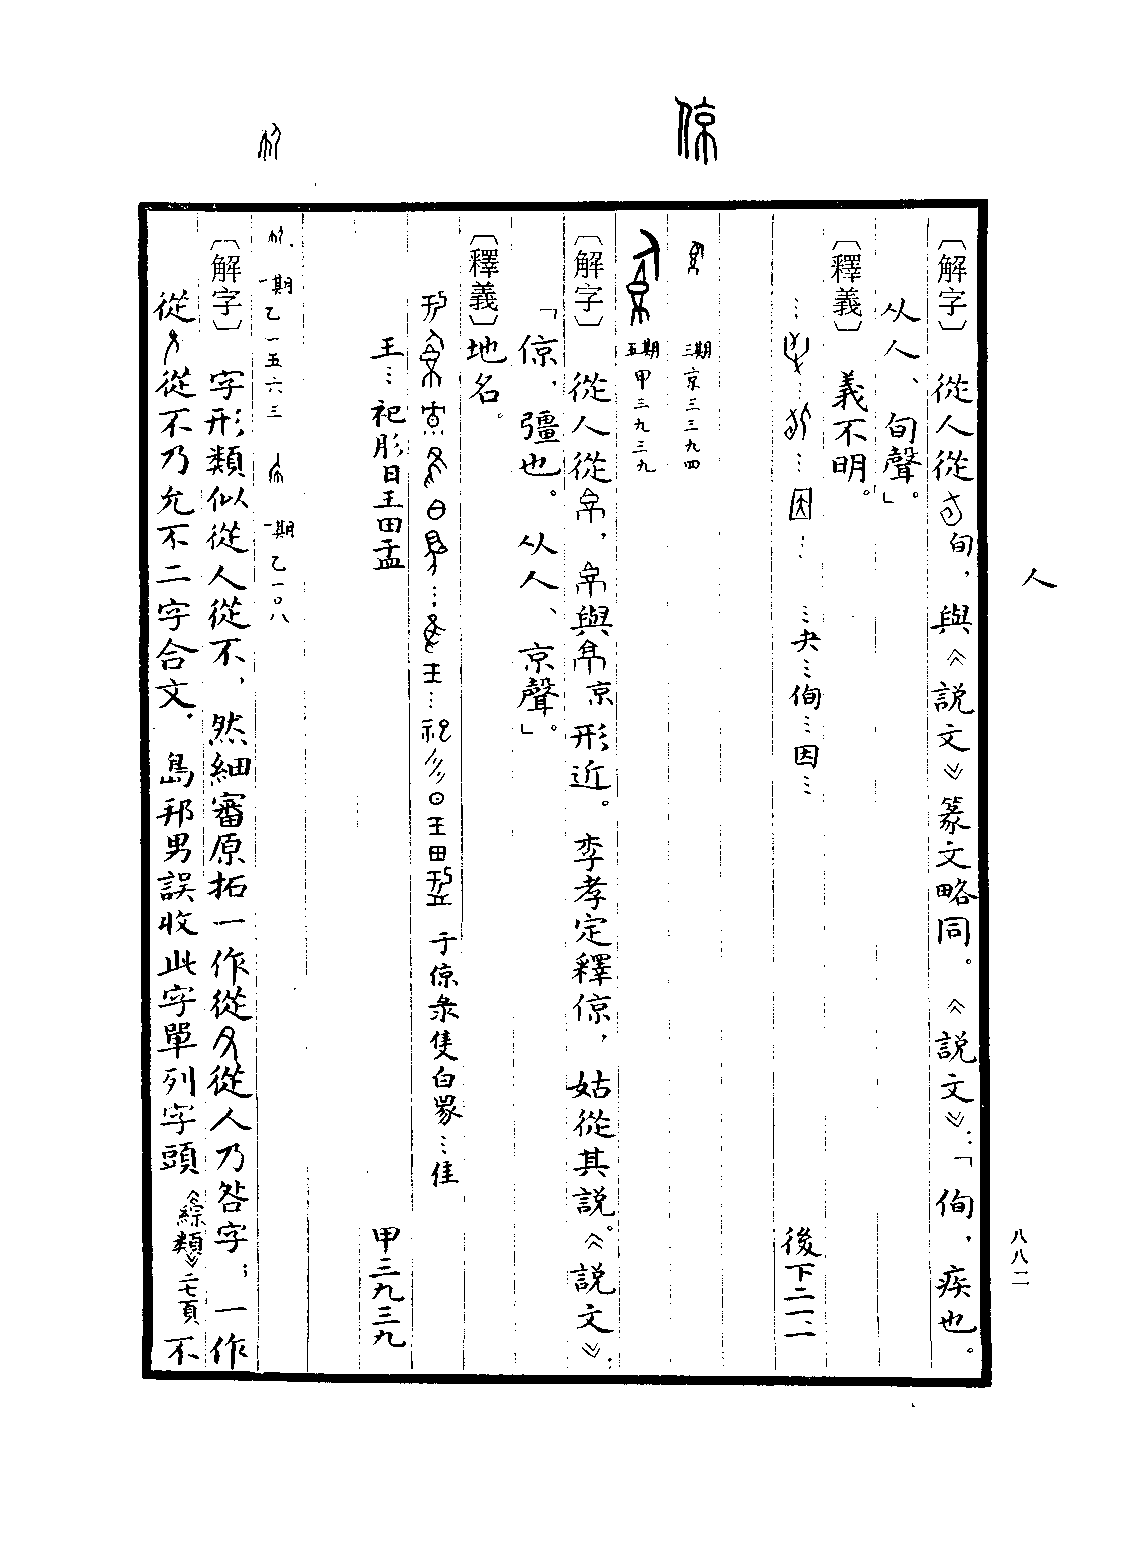 人
八八二
〔解字〕從人從旬，與《説文》篆文略同。《説文》：「侚，疾也。
从人、旬聲。」
〔釋義〕義不明。
…夬…侚…因… 後下二一·一
三期 京三三九四
五期 甲三九三九
〔解字〕從人從，與京形近。李孝定釋倞，姑從其説。《説文》：
「倞，彊也。从人、京聲。」
〔釋義〕地名。
于倞彔隻白兕…隹
王…祀肜日王田盂 甲三九三九
一期 乙一五六三 一期 乙一〇八
〔解字〕字形類似從人從不，然細審原拓一作從從人乃咎字；一作
從從不乃允不二字合文，島邦男誤收此字單列字頭《綜類》二七頁不